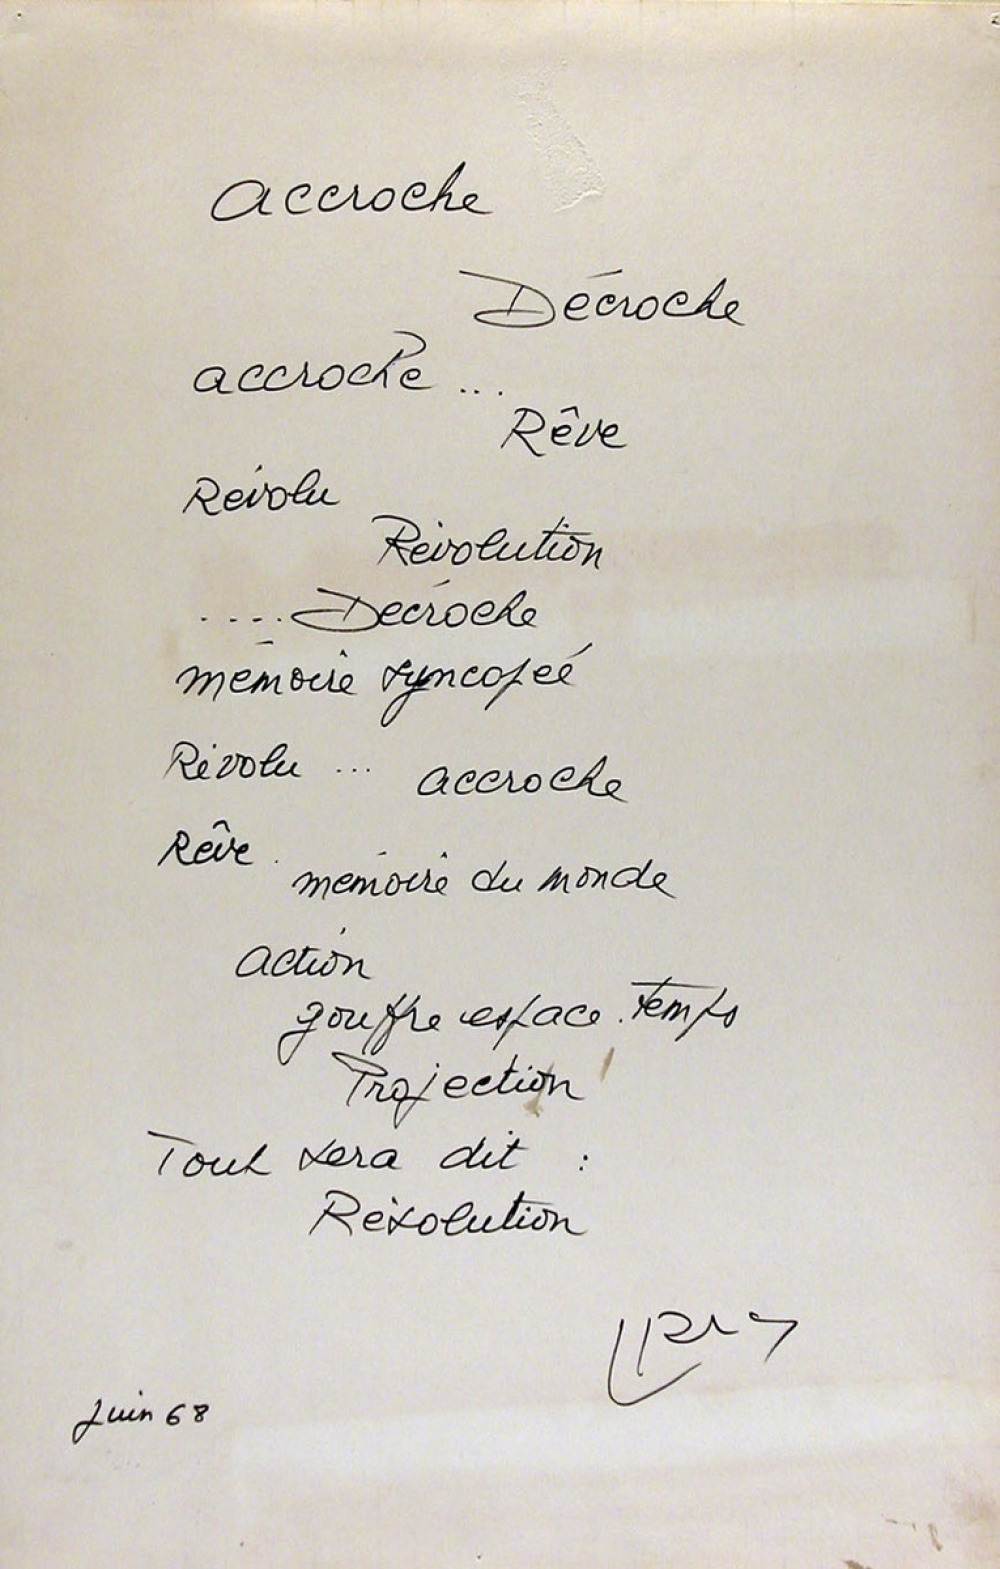 accroche
Décroche
accroche ...
Rêve
Révolu
Révolution
..... Décroche
mémoire syncopée
Révolu ... accroche
Rêve .
mémoire du monde
action
gouffre espace. temps
Projection
Tout sera dit :
Résolution
Juin 68